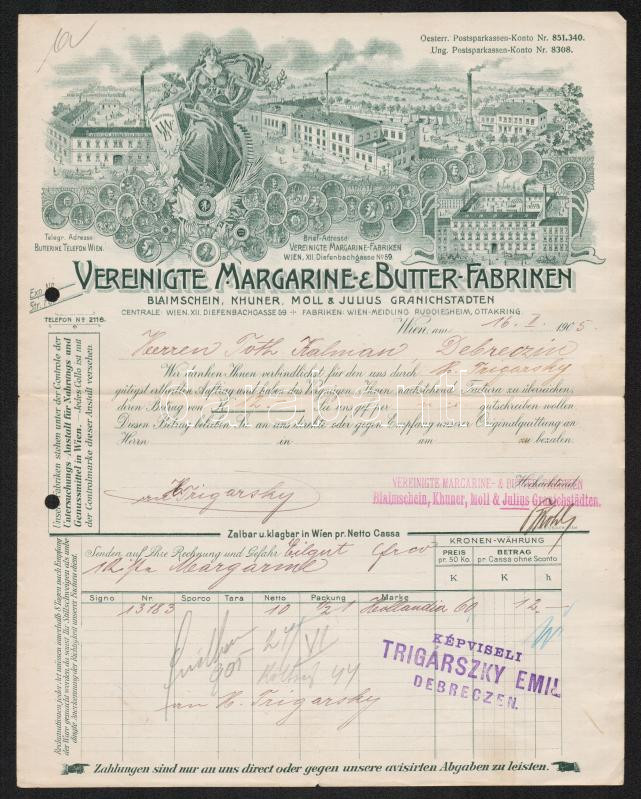 Oesterr. Postsparkassen-Konto Nr. 851.340.
Ung. Postsparkassen-Konto Nr. 8308.
Telegr. Adresse:
BUTTERINE TELEFON WIEN.
Brief-Adresse:
VEREINIGTE MARGARINE-FABRIKEN
WIEN, XII. Diefenbachgasse No 59.
VEREINIGTE MARGARINE-& BUTTER-FABRIKEN
BLAIMSCHEIN, KHUNER, MOLL & JULIUS GRANICHSTÄDTEN
CENTRALE: WIEN. XII. DIEFENBACHGASSE 59 + FABRIKEN: WIEN-MEIDLING RUDOLFSHEIM, OTTAKRING.
TELEFON No 2116.
Wien, am 16. I. 1905.
Herren Toth Kalman Debreczin
Wir danken Ihnen verbindlichst für den uns durch H. Trigarsky
gütigst ertheilten Auftrag und haben das Vergnügen, Ihnen nachstehend Factura zu überreichen,
deren Betrag von K 12.- Sie uns gef. per gutschreiben wollen
Diesen Betrag belieben Sie an uns direkt oder gegen Empfang unserer Originalquittung an
Herrn in am zu bezahlen.
Unsere Fabriken stehen unter der Controle der
Untersuchungs Anstalt für Nahrungs und
Genussmittel in Wien. Jedes Collo ist mit
der Controlmarke dieser Anstalt versehen.
Hochachtend
VEREINIGTE MARGARINE- & BUTTER-FABRIKEN
Blaimschein, Khuner, Moll & Julius Granichstädten.
an H Trigarsky
Zalbar u. klagbar in Wien pr. Netto Cassa
KRONEN-WÄHRUNG
Senden auf Ihre Rechnung und Gefahr Eilgut frco
PREIS
pr. 50 Ko.
BETRAG
pr. Cassa ohne Sconto
Margarine
K K h
Signo Nr. Sporco Tara Netto Packung Marke
13183 10 1/2 1 Hollandia 60 12.-
24/VI
905
an H. Trigarsky
KÉPVISELI
TRIGÁRSZKY EMIL
DEBRECZEN.
Zahlungen sind nur an uns direct oder gegen unsere avisirten Abgaben zu leisten.